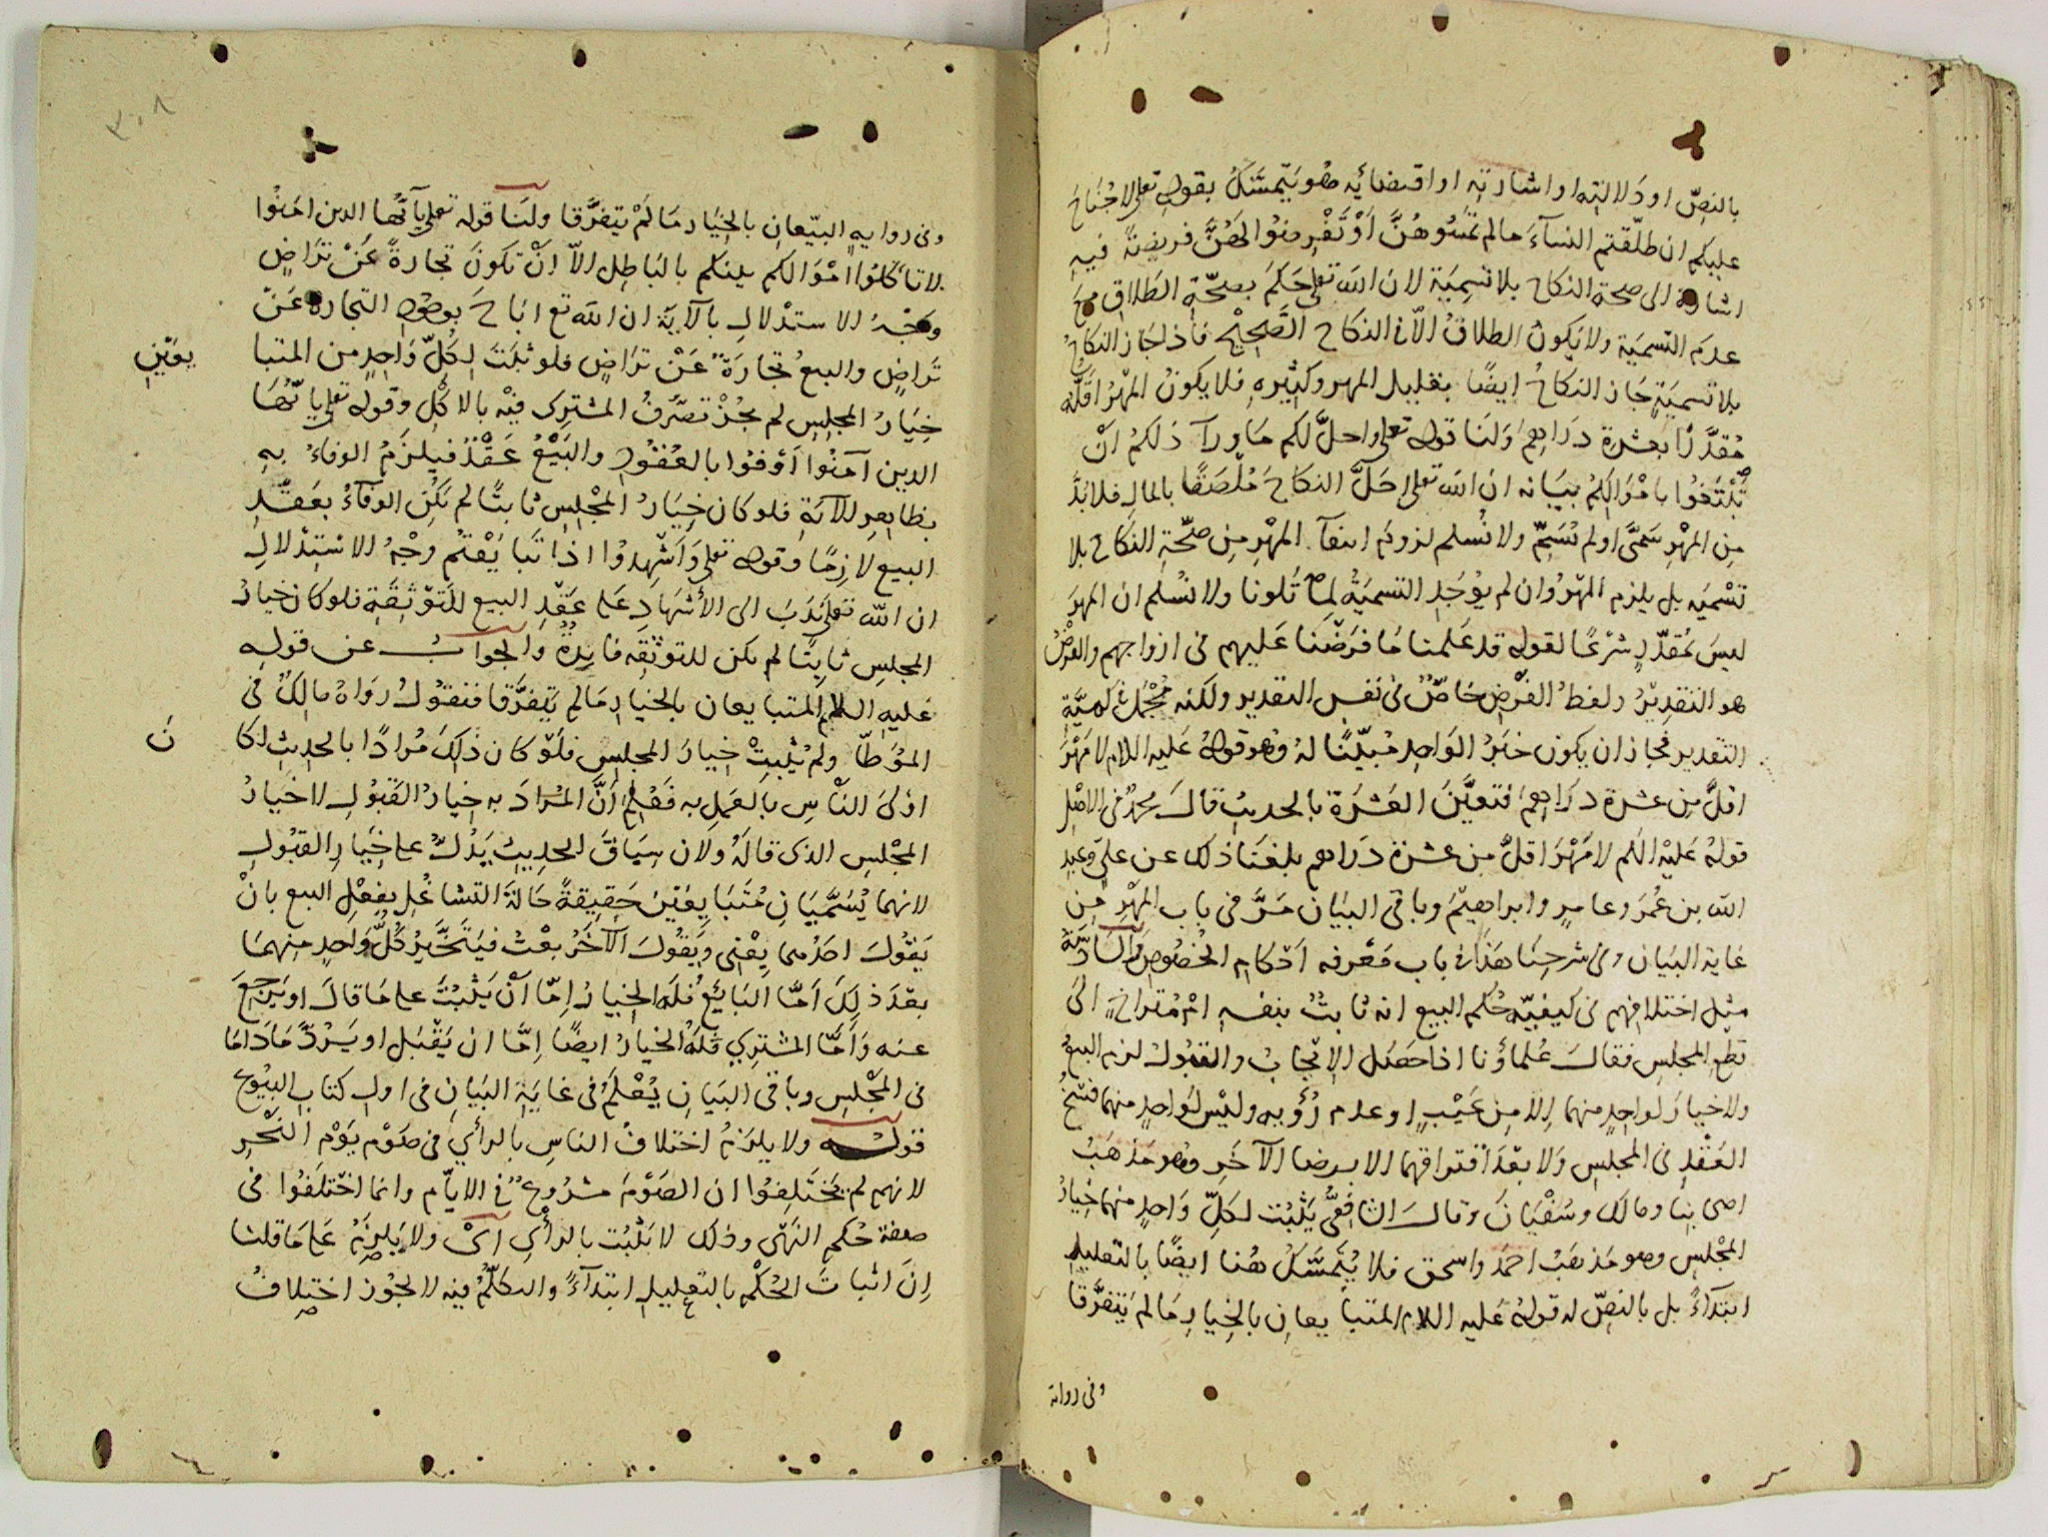 بالنصّ او دلالته او اشارته او اقتضائه هو يتمسّك بقوله تعلى لا جُنَاحَ
عليكم ان طلّقتم النسآءَ مالم تمسّوهُنَّ اَوْ تَفْرِضُوا لَهُنَّ فريضةً فيه
اشارة الى صحة النكاح بلا تسمِيَة لان الله تعلى حَكَمَ بصحّةِ الطلاقِ مع
عدم التّسمية ولا يكونُ الطلاقُ الاّ فى النكاحِ الصَّحِيْحِ فاذا جَاز النكاحُ
بلا تسميَةٍ جَاز النكاحُ ايضًا بقليل المهر وكثيرهِ فلا يكونُ المَهْرُ اَقَلُّه
مُقدَّرًا بعشرة دَرَاهِمَ وَلَنَا قوله تعلى واحلَّ لكم مَا ورآ ذلكمْ اَنْ
تَبْتَغُوا بامْوَالِكُمْ بيَانه انَ الله تعلى اَحَلَّ النكاحَ مُلْصَقًا بالمالِ فلا بُدَّ
مِنِ المَهْرِ سَمَّى او لم يُسَمِّ ولا نُسلم لزومَ انتفآ المَهْرِ مِن صحّةِ النكاح بلا
تَسْميَه بل يلزم المهْرُ وان لم يوُجَدِ التّسميَةُ لِمَا تَلونا ولا نسُلم ان المهرَ
ليسَ بمُقدّرٍ شرْعًا لقوله قد عَلمنا مَا فرَضْنَا عَليهم فى ازواجهم والفرْضُ
هو التقدِيْرُ ولفظُ الفَرْضِ خاصٌّ فى نفس التقدير ولكنه مُجْمَلٌ فى كميَّةِ
التقدير فجاز ان يكون خبَرُ الوَاحِدِ مُبيِّنًا لهُ وَهو قولهُ عَليه السلام لا مَهْرَ
اقلَّ مِن عشرة دَرَاهِمَ فتعيَّنَ العَشَرَة بالحديثِ قالَ محمدٌ فى الاصْلِ
قولهُ عَليْه السَّلم لا مَهْرَ اقلَّ مِن عشرَة دَرَاهم بلغنَا ذلك عن علىّ وعبدِ
الله بن عُمَرَ وعامِرٍ وابراهيْمَ وباقى البيَان مَرَّ فى باب المَهْرِ مِن
غاية البيَان وفى شرحِنَا هَذا فى باب مَعْرفه اَحْكامِ الخُصُوصِ وَالسَّادِسَةُ
مثِل اختلافِهم فى كيفيّة حُكم البيع انه ثابتٌ بنفسهِ اَمْ مُتراخٍ الى
قطعِ المجلسِ فقالَ عُلماؤُنا اذا حَصَل الاِيْجابُ والقبُولُ لزمَ البيعُ
ولا خيارَ لواحِدٍ منهما اِلاّ مِن عَيْبٍ او عدم رُؤيه وليْسَ لواحِدٍ منهما فسْخُ
العَقْدِ فى المجلسِ وَلا بعْدَ افتراقِهما الا برضا الآخَرِ وهو مَذهَبُ
اصحابنا ومالكٍ وسُفْيَانَ وقالَ الشافعىُّ يَثْبُتُ لكلِّ وَاحِدٍ منهما خِيَارُ
المجْلسِ وهو مَذهَبُ احمَدَ واسحق فلا يُتَمسَّكُ هُنا ايضًا بالتعليلِ
ابتدآءً بل بالنصّ له قولهُ عَليه السلام المتبا يعانِ بالخِيارِ مَا لم يَتفرَّقا
وفى رواية
٣٠٨
وفى روايهٍ البيّعانِ بالخيَار مَا لَمْ يتفرَّقا ولَنَا قوله تعلى يآ أيُّهَا الدين امَنُوا
لا تأكلوا امْوَالكم بينكم بالبَاطِلِ الاّ اَنْ تكونَ تجارةً عَنْ تَرَاضٍ
وَوَجْهُ الاستدْلالِ بالآيَة ان الله تع اباحَ بوصْفِ التجاره عَنْ
تَراضٍ والبيعُ تجارَةٌ عَنْ تراضٍ فلو ثَبَتَ لِكلِّ وَاحِدٍ من المتبا
يعَيْنِ
خِيَارُ المجلِسِ لم يجُزْ تصَرُّفُ المشترى فيْه بالاكْلِ وقوله تعلى يا ايُّهَا
الدين آمَنُوا اَوْفُوا بالعُقُودِ والبَيْعُ عَقْدٌ فيلزَمُ الوفاءُ بهِ
بظاهِرِ الآيَةِ فلو كان خيَارُ المجْلِسِ ثابتًا لم يَكُنِ الوفآءُ بعَقْدِ
البيع لازِمًا وقوله تعلى وَاَشْهِدُوا اذا تبَايَعْتُم وَجْهُ الاسْتِدْلالِ
ان الله تعلى نَدَبَ الى الاشْهَادِ عَلى عَقْدِ البيع للتَوْثِقَةِ فلو كان خيارُ
المجلسِ ثابتًا لم يكن للتوثِقَه فايدةٌ وَالجوابُ عن قولِه
عَليهِ السلام المتبايعان بالخيارِ مَا لم يَتَفرَّقا فنقولُ رَوَاهُ مالكٌ فى
المُوَطّأ ولمْ يُثبِتْ خيارَ المجلسِ فلَوْ كان ذلكَ مُرادًا بالحديثِ لكا
نَ
اوْلىَ الناسِ بالعَمل به فَعُلِمَ اَنَّ المُرادَ به خيارُ القَبُولِ لا خيارُ
المجْلسِ الذى قالَهُ ولان سِيَاقَ الحديثِ يَدُلُّ على خيَارِ القبُولِ
لانهما يُسَمَّيَانِ مُتَبَايِعَيْنِ حَقِيقةً حَالةَ التشاغُلِ بفِعْلِ البيع بانْ
يَقُولَ احَدُهما بِعْنى وَيَقُولَ الآخَرُ بعْتُ فيَتَخَيَّرُ كُلُّ وَاحِدٍ منهمَا
بعْدَ ذلكَ اَمَّا البَائعُ فلهُ الخيارُ اِمّا اَنْ يَثْبُتَ على مَا قالَ او يَرْجعَ
عنه وَاَمَّا المشترِي فلهُ الخيارُ ايضًا اِمَّا ان يَقْبَل او يَرُدَّ مَا دَامَا
فى المجْلسِ وباقى البَيَانِ يُعْلَمُ فى غايَةِ البَيَانِ فى اول كتاب البيُوع
قولـه ولا يلزَمُ اختلافُ الناسِ بالرأي فى صَوْم يَوْم النَّحْرِ
لانهم لم يَخْتَلِفُوا ان الصَوْمَ مشرُوعٌ فى الايّام وانما اخْتلَفُوا فى
صفة حُكمِ النَهْى وذلك لا يَثْبُت بالرأي اىْ ولا يَلزَمُ عَلى مَا قلنا
اِنَ اثباتَ الحُكْمِ بالتعليلِ ابتدآءً والتكلّمُ فيه لا يجُوز اختِلافُ